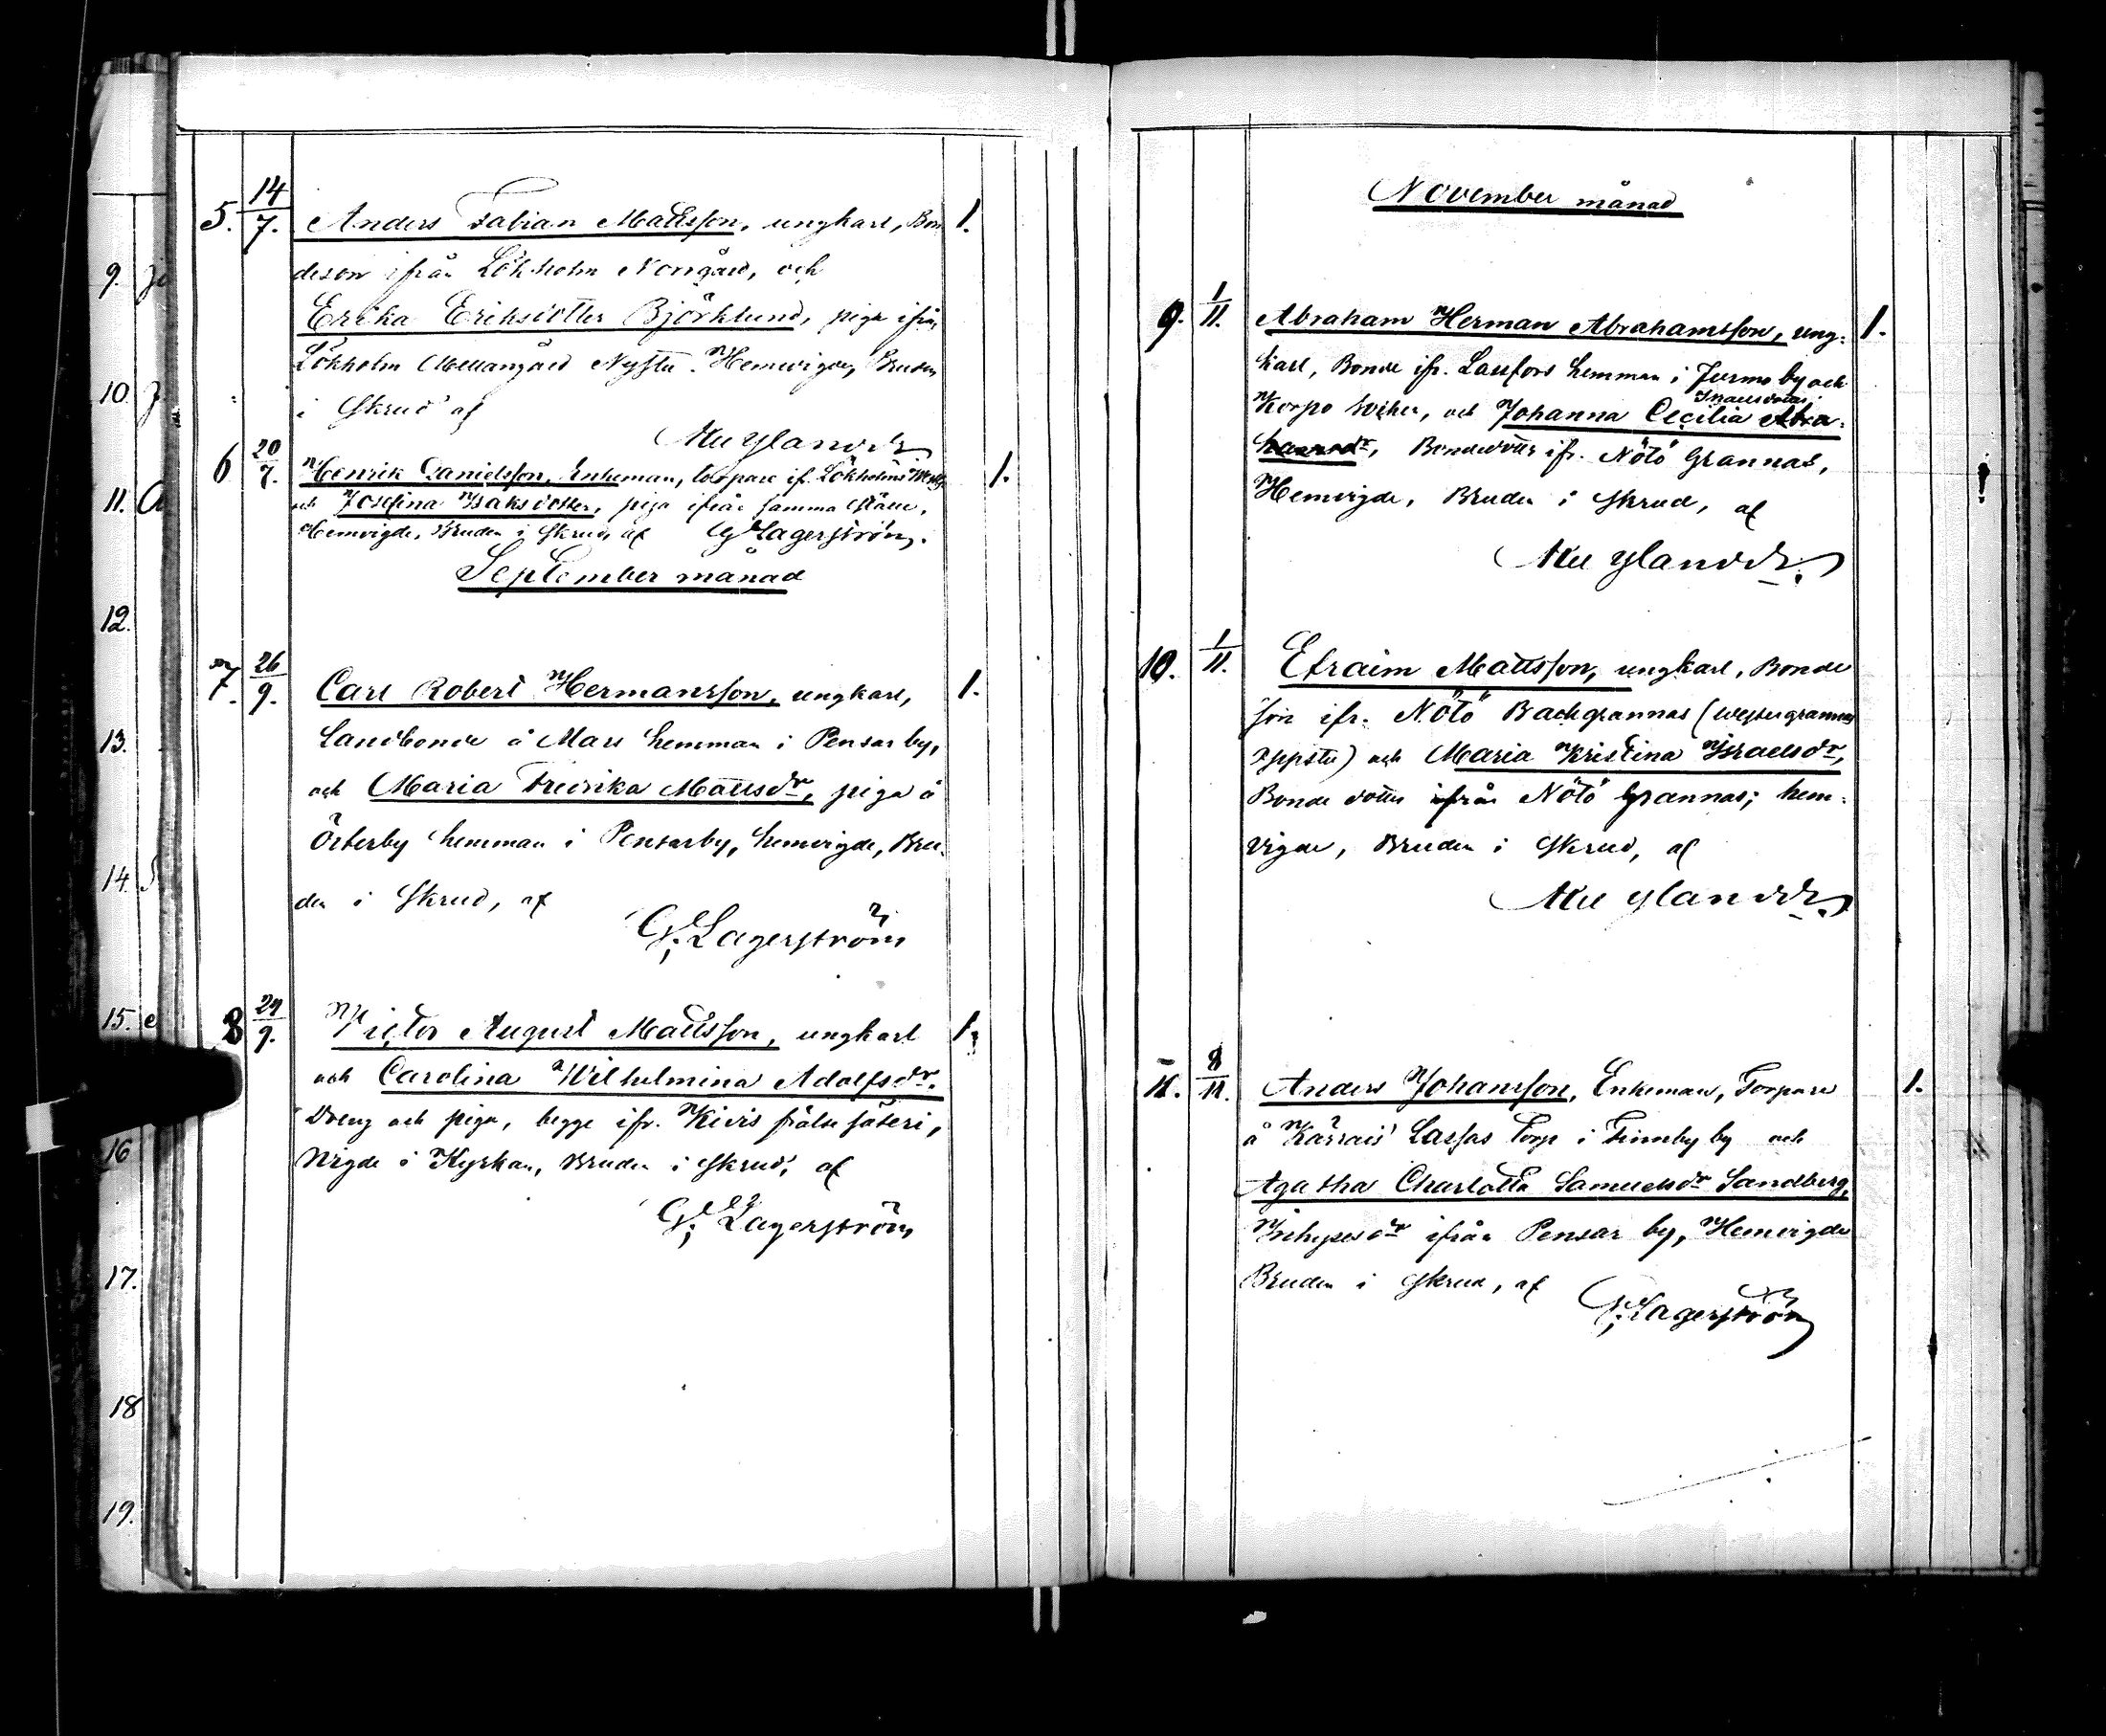 9.
10.
11.
12.
13.
14.
15.
16
17.
18
19.
5. 14/7. Anders Fabian Mattsson, ungkarl, Bon 1.
deson ifrån Lökholm Norrgård, och
Erika Eriksdotter Björklund, piga ifrån
Lökholm Mellangård Nystu. Hemvigde, Bruden
i Skrud af
Ylander
6 20/7. Henrik Danielsson, Enkeman, torpare if. Lökholms 1.
och Josefina Isaksdotter, piga ifrån samma ställe,
Hemvigde, Bruden i Skrud, af G Lagerström.
September månad
7. 26/9. Carl Robert Hermansson, ungkarl, 1.
Landbonde å Mars hemman i Pensar by,
och Maria Fredrika Mattsdr, piga å
Österby hemman i Pensarby, hemvigde, Bru-
den i Skrud, af
G. Lagerström
8 29/9. Victor August Mattsson, ungkarl 1.
och Carolina Wilhelmina Adolfsdr.
Dreng och piga, begge ifr. Kivis frälse säteri,
Vigde i Kyrkan, Bruden i Skrud, af
G. Lagerström
November månad
9. 1/11. Abraham Herman Abrahamsson, ung- 1.
karl, Bonde ifr. Lassfors hemman i Jurmo by och
Israelsdotter
Korpo socken, och Johanna Cecilia Abra-
hamsdr, Bondedotter ifr. Nötö Grannas,
Hemvigde, Bruden i Skrud, af
Ylander
10. 1/11. Efraim Mattsson, ungkarl, Bonde
son ifr. Nötö Backgrannas (Westergrannas
Yppstu) och Maria Kristina Israelsdr,
Bonde dotter ifrån Nötö Grannas; hem-
vigde, Bruden i Skrud, af
Ylander
11. 8/11. Anders Johansson, Enkeman, Torpare 1.
å Kärrais Lassas Torp i Finnby by och
Agatha Charlotta Samuelsdr Sandberg,
Inhysesdr ifrån Pensar by, Hemvigde
Bruden i Skrud, af
G. Lagerström